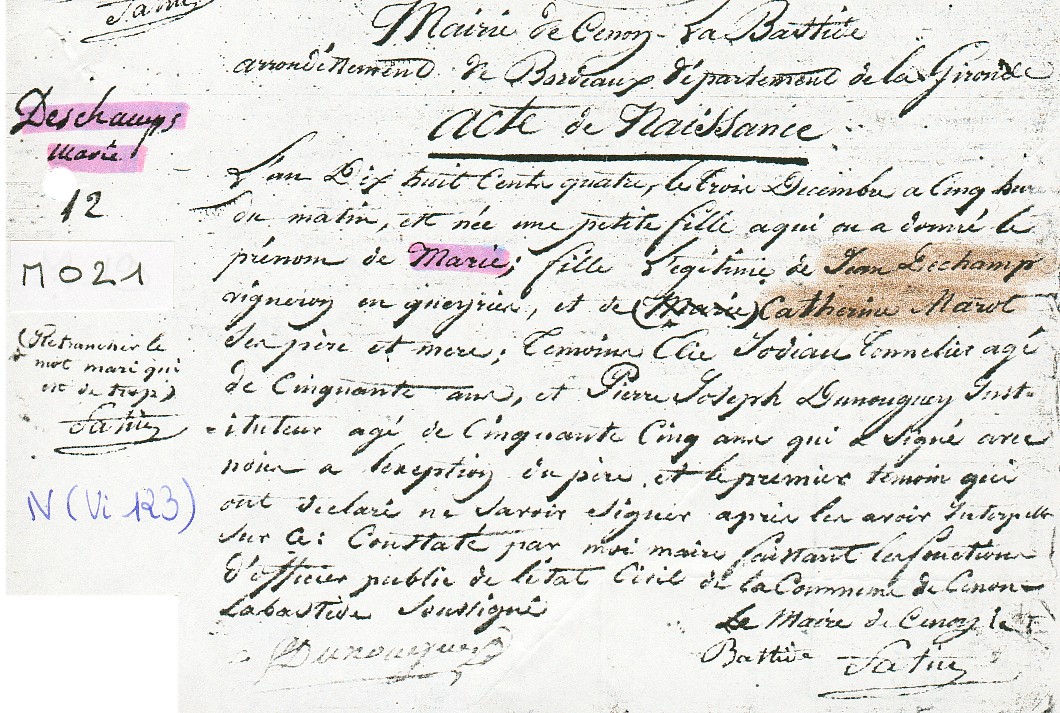 Satin
Mairie de Cenon-La Bastide
arrondissement de Bordeaux département de la Gironde
Acte de Naissance
Deschamps
Marie
12
M021
(Retrancher le
mot mari qui
est de trop)
Satin
N (Vi 123)
L'an Dix huit Cents quatre, le trois Decembre a Cinq hure
du matin, est née une petite fille a qui on a donné le
prénom de Marie; fille Legitime de Jean Dechamp
vigneron en queyries, et de (Marie) Catherine Marot
Ses père et mere; Temoins Elie Tonnelier agé
de Cinquante ans, et Pierre Joseph Dunouguey Inst-
ituteur agé de Cinquante Cinq ans qui a Signé avec
nous a l'exeption du père, et le premier temoin qui
ont declaré ne Savoir Signer après les avoir Interpellé
Sur Ce: Constaté par moi maire faisant les fonctions
d'officier public de l'état Civil de la Commune de Cenon-
Labastide Soussigné
Le Maire de Cenon la
Bastide Satin
Dunouguey